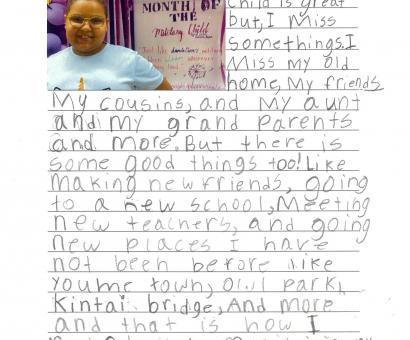 MONTH OF
THE
Military Child
Child is great
but, I Miss
somethings. I
Miss my old
home, My friends
My cousins, and My aunt
and my grand Parents
and more. But there is
some good things too! Like
Making new friends, going
to a new school, Meeting
new teachers, and going
new places I have
not been before like
youme town, park,
Kintai bridge, And more
and that is how I